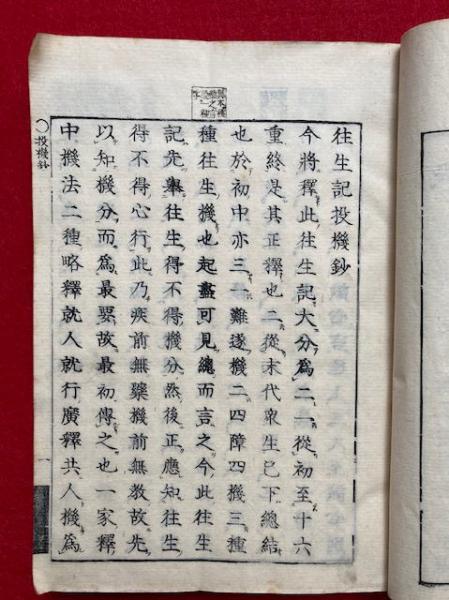 往生記投機鈔
今將釋此往生記大分為二一從初至十六
重終是其正釋也二從末代衆生已下總結
也於初中亦三一難遂機二四障四機三種
種往生機也起盡可見總而言之今此往生
記先舉往生得不得機分然後正應知往生
得不得心行此乃疾前無藥機前無教故先
以知機分而為最要故最初傳之也一家釋
中機法二種略釋就人就行廣釋共人機為
〇投機鈔
一